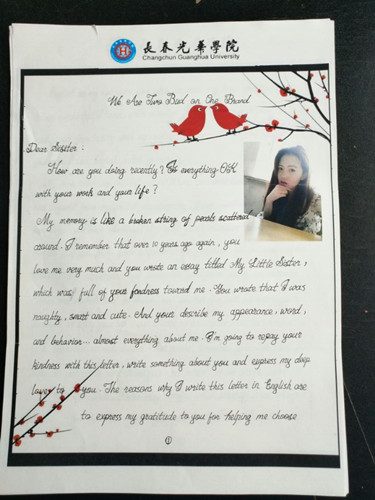 長春光華學院
Changchun Guanghua University
We Are Two Bud on One Brand
Dear Sister :
How are you doing recently? Is everything OK
with your work and your life ?
My memory is like a broken string of pearls scattered
around. I remember that over 10 years ago again, you
love me very much and you wrote an essay titled My Little Sister,
which was full of your fondness toward me. You wrote that I was
naughty, smart and cute. And your describe my appearance, word,
and behavior... almost everything about me. I'm going to repay your
kindness with this letter, write something about you and express my deep
love to you. The reasons why I write this letter in English are
to express my gratitude to you for helping me choose
①